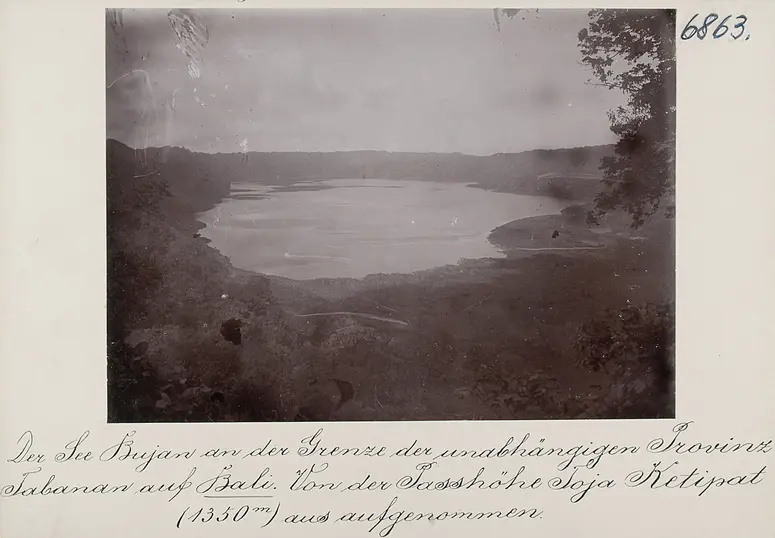 6863.
Der See Bujan an der Grenze der unabhängigen Provinz
Tabanan auf Bali. Von der Passhöhe Toja Ketipat
(1350ᵐ) aus aufgenommen.